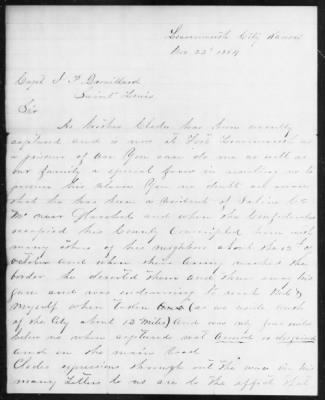 Leavenworth City Kansas
Nov 22d 1864
Capt J. F.
Saint Louis
Sir
My brother has been recently
captured and is now at Fort Leavenworth as
a prisoner of war You can do me as well as
our family a special favor in assisting us to
his release You no doubt are aware
that he has been a resident of Saline Co
Mo near Marshall and when the Confederates
occupied this County Conscripted him with
many others of his neighbors about the 15th of
October and when their Army reached the
border he deserted them and threw away his
gun and was endeavoring to reach
Myself when taken (as we reside south
of the City about 12 miles) and was only four miles
below us when captured not armed or disguised
and on the main road
expressions through out the war in his
many letters to us are to the effect that